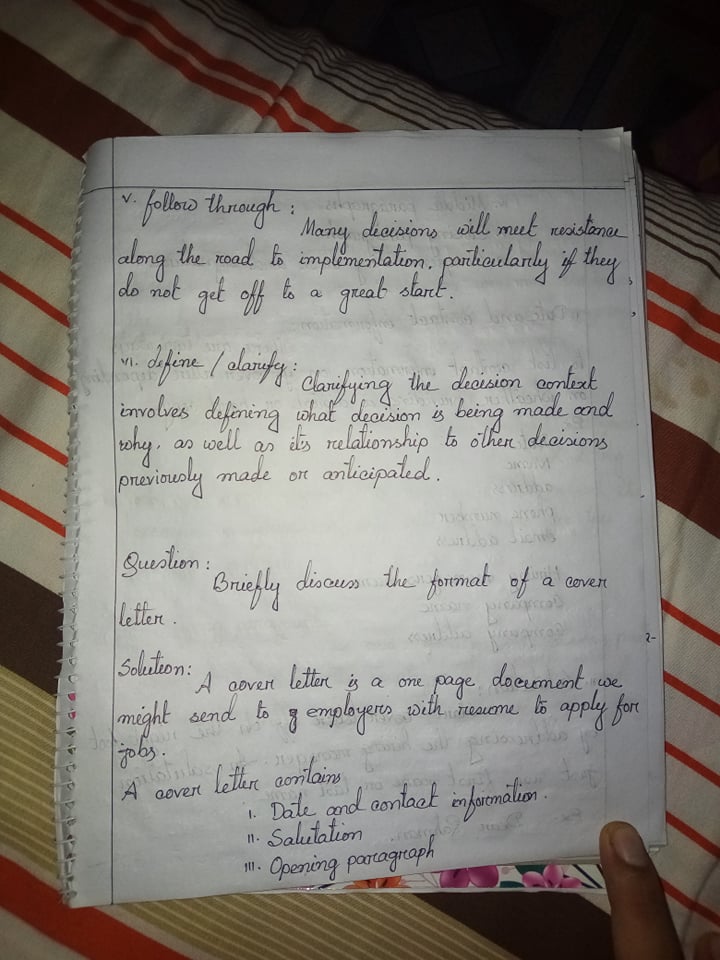 v. follow through :
Many decisions will meet resistance
along the road to implementation. particularly if they
do not get off to a great start.
vi. define / clarify :
Clarifying the decision context
involves defining what decision is being made and
why. as well as it's relationship to other decisions
previously made or anticipated.
Question :
Briefly discuss the format of a cover
letter.
Solution :
A cover letter is a one page document we
might send to employers with resume to apply for
jobs.
A cover letter contains
i. Date and contact information.
ii. Salutation
iii. Opening paragraph